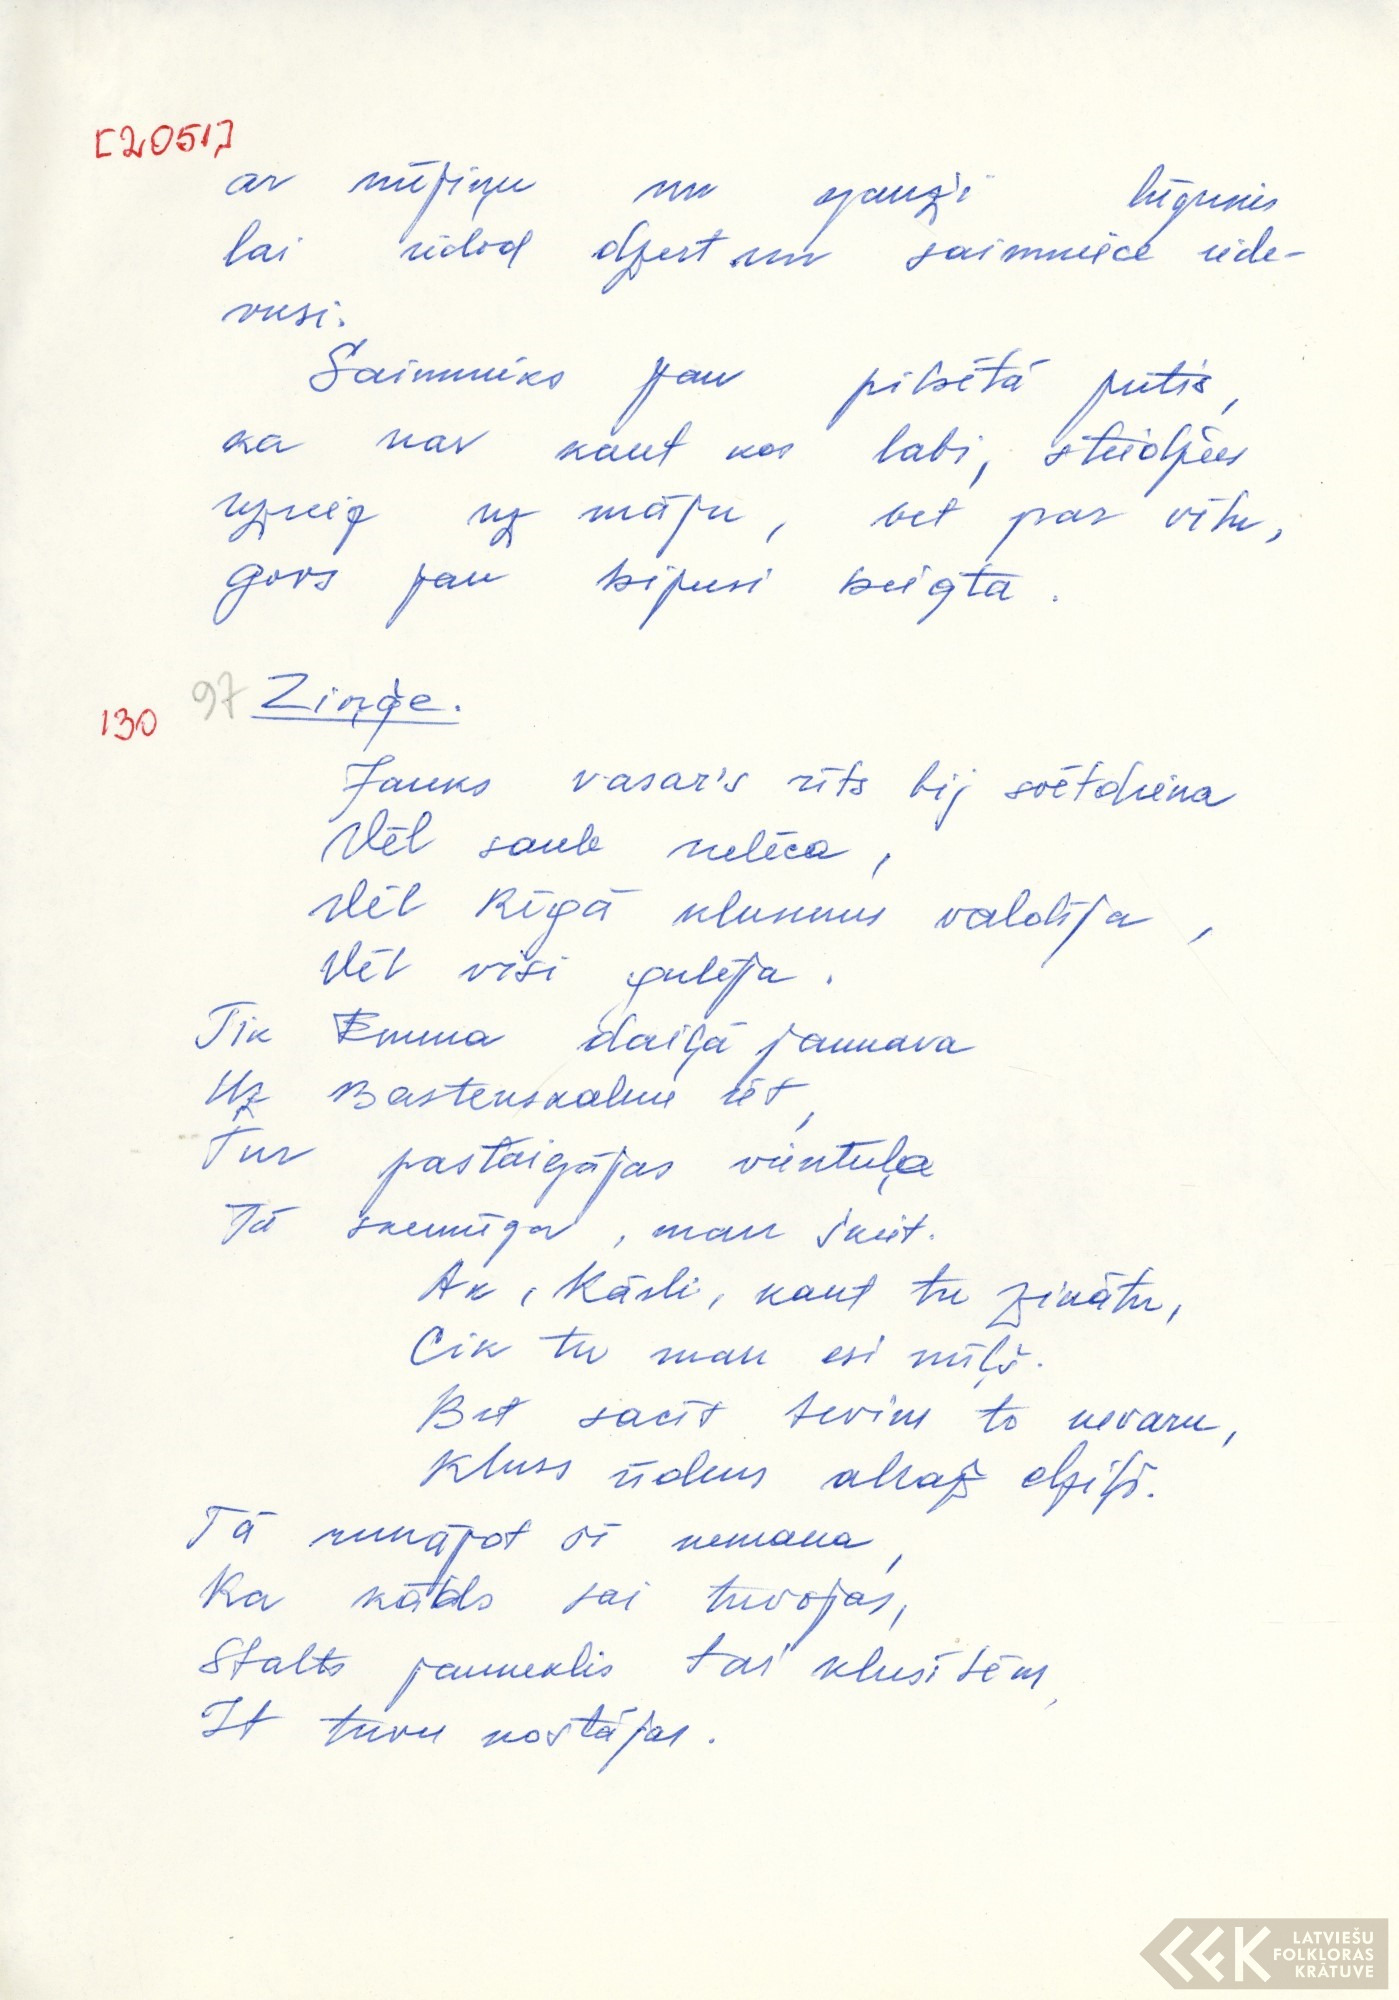 [2051]
ar mūjiņu un gauži lūgusies
lai iedod dzert un saimniece iede-
vusi.
Saimnieks jau pilsētā jutis,
ka nav kaut kas labi, steidzies
uzreiz uz māju, bet par vēlu,
govs jau bijusi beigta.
97 Ziņģe.
130
Jauks vasar's rīts bij svētdiena
Vēl saule nelēca,
Vēl Rīgā klusums valdīja,
Vēl visi gulēja.
Tik Emma daiļā jaunava
Uz Bastenskalnu iet,
Tur pastaigājas vientuļa
Tā skumīga, man šķiet.
Ak, Kārli, kaut tu zinātu,
Cik tu man esi mīļš.
Bet sacīt tevim to nevaru,
Kluss ūdens allaž dziļš.
Tā runājot šī nemana,
Ka kāds tai tuvojas,
Stalts jauneklis tai klusītēm,
It tuvu nostājas.
LATVIEŠU
FOLKLORAS
KRĀTUVE